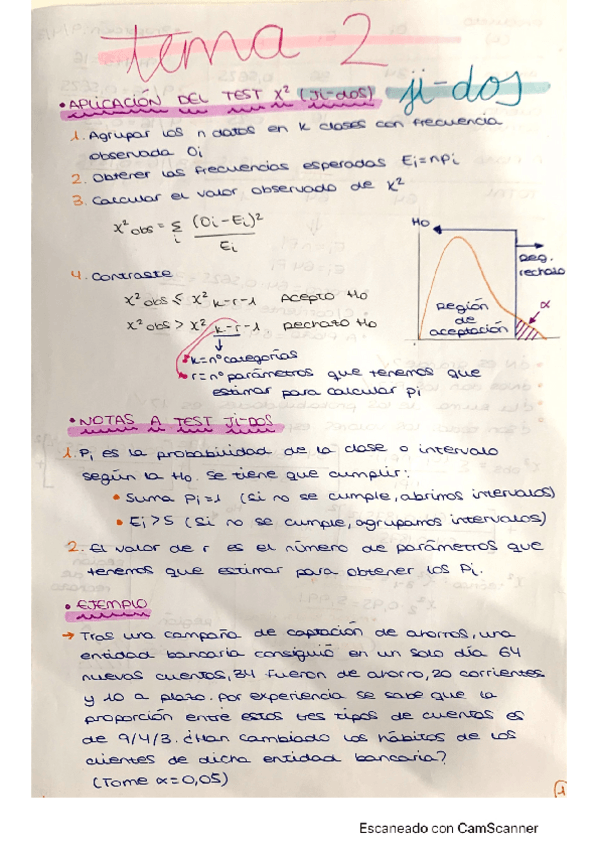 tema 2
• APLICACIÓN DEL TEST X² (JI-DOS) ji-dos
1. Agrupar los n datos en k clases con frecuencia
observada Oi
2. Obtener las frecuencias esperadas Ei=npi
3. Calcular el valor observado de X²
X² obs = Σ i (Oi-Ei)² / Ei
Ho
Reg.
rechazo
α
Región
de
aceptación
4. Contraste
X² obs ≤ X² k-r-1 Acepto Ho
X² obs > X² k-r-1. Rechazo Ho
k=nº categorías
r=nº parámetros que tenemos que
estimar para calcular pi
• NOTAS A TEST JI-DOS
1. Pi es la probabilidad de la clase o intervalo
según la Ho. Se tiene que cumplir:
• Suma Pi=1 (Si no se cumple, abrimos intervalos)
• Ei>5 (Si no se cumple, agrupamos intervalos)
2. El valor de r es el número de parámetros que
tenemos que estimar para obtener los Pi.
• EJEMPLO
→ Tras una campaña de captación de ahorros, una
entidad bancaria consiguió en un solo día 64
nuevas cuentas, 34 fueron de ahorro, 20 corrientes
y 10 a plazo. Por experiencia se sabe que la
proporción entre estos tres tipos de cuentas es
de 9/4/3. ¿Han cambiado los hábitos de los
clientes de dicha entidad bancaria?
(Tome α=0,05)
1
Escaneado con CamScanner